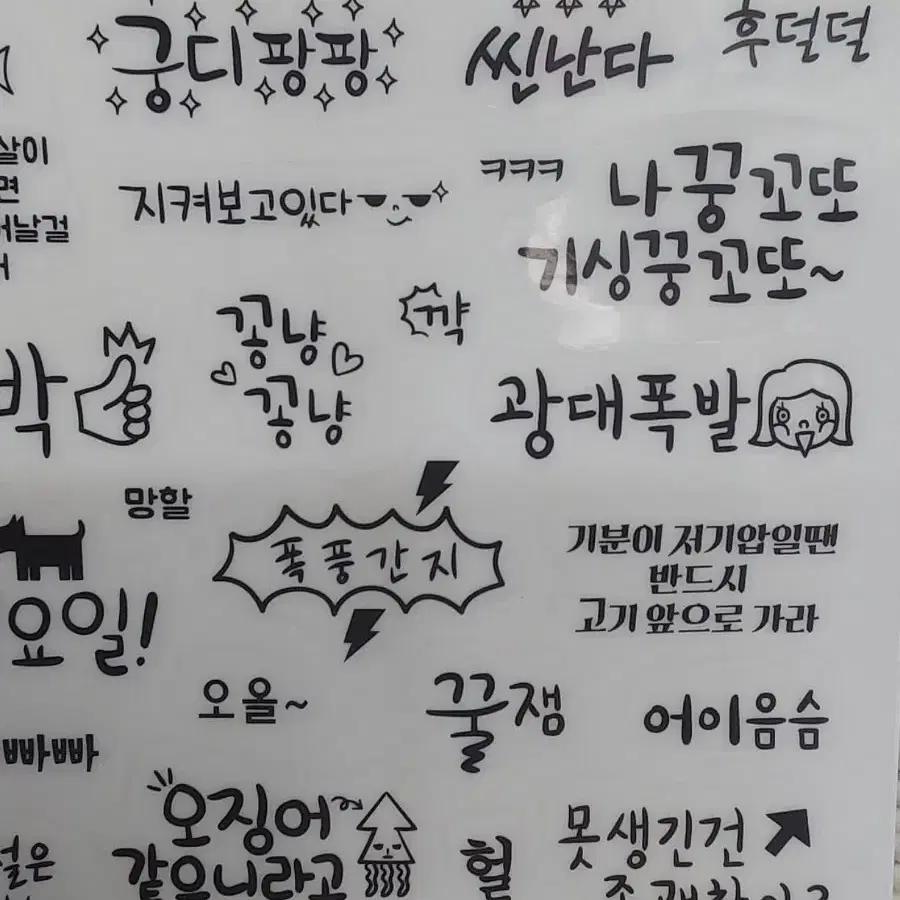 궁디팡팡
씐난다
후덜덜
살이
면
날걸
지켜보고있다
ㅋㅋㅋ
나 꿍꼬또
기싱꿍꼬또~
꽁냥
꽁냥
꺅
박
광대폭발
망할
폭풍간지
기분이 저기압일땐
반드시
고기 앞으로 가라
요일!
오올~
꿀잼
어이음슴
빠빠
오징어
같으니라고
헐
못생긴건